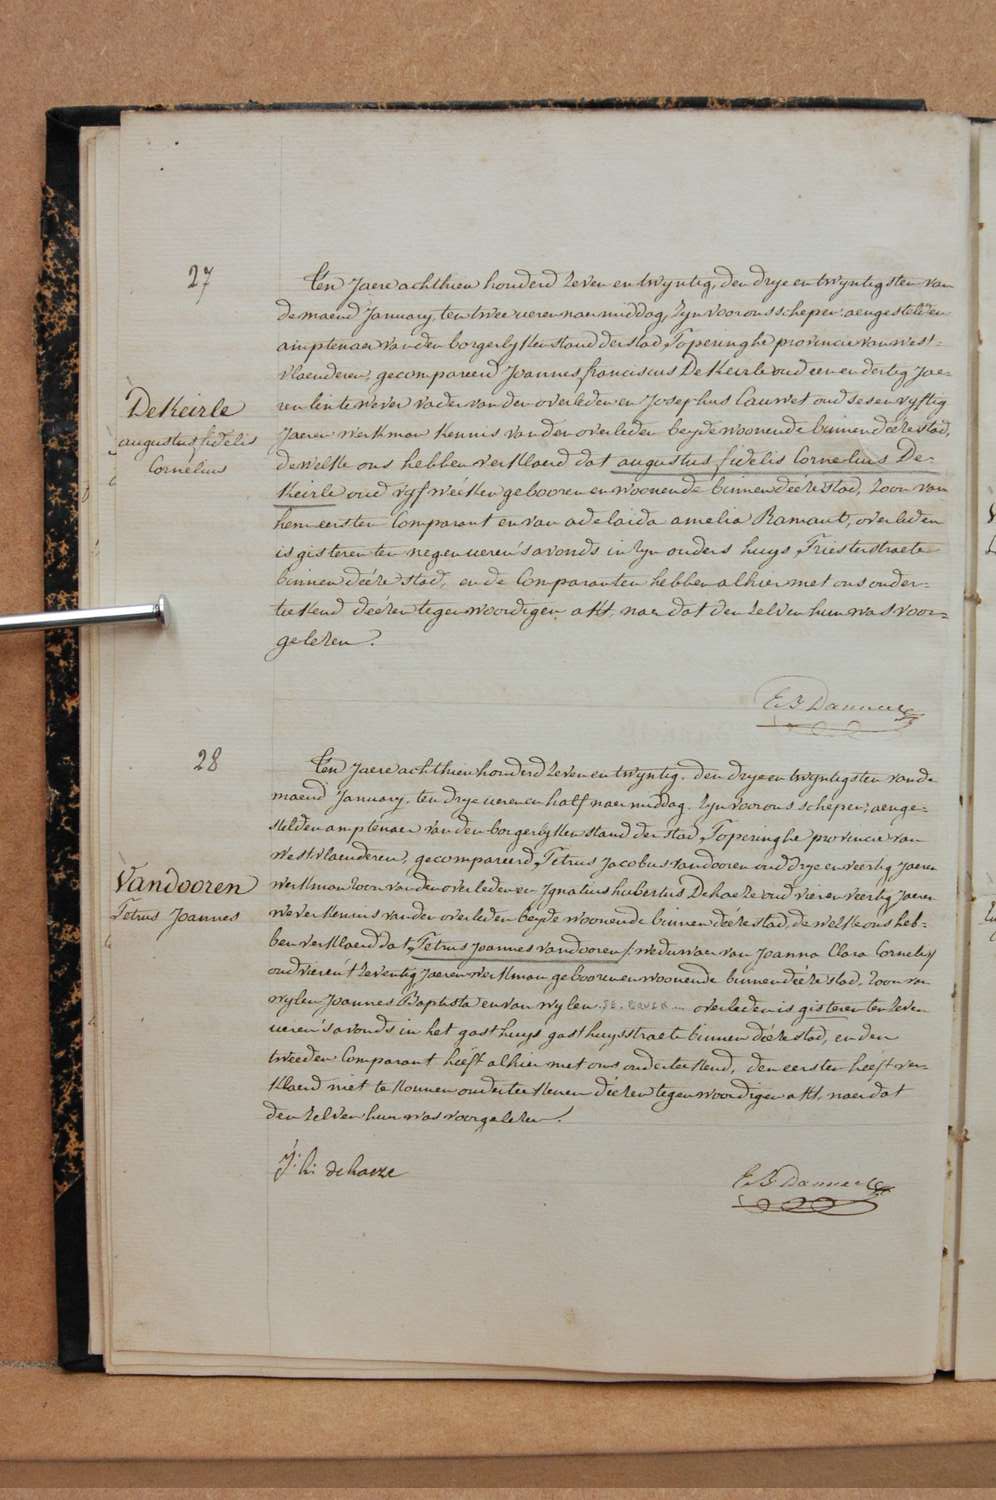 27
Ten Jaere achthien honderd zeven en twyntig, den drye en twyntigsten van
de maend January, ten twee ueren naer middag, zyn voor ons schepen aengestelden
amptenaer van den borgerlyken stand der stad Poperinghe provincie van west-
vlaenderen, gecompareerd Joannes franciscus DeKeirle oud een en dertig Jae-
DeKeirle
augustus fidelis
Cornelius
ren linte wever vader van den overledenen Josephus Cauwet oud ses en vyftig
Jaeren werkman Kennis van den overleden beyde woonende binnen déeze stad,
dewelke ons hebben verklaerd dat augustus fidelis Cornelius De-
Keirle oud vyf wéeken gebooren en woonende binnen déeze stad, zoon van
hem eersten Comparant en van adelaida amelia Ramaut, overleden
is gisteren ten negen ueren s'avonds in zyn ouders huys, Priesterstraete
binnen déeze stad, en de Comparanten hebben alhier met ons onder-
teekend déezen tegenwoordigen akt, naer dat den zelven hun was voor-
gelezen.
28
Ten Jaere achthien honderd zeven en twyntig, den drye en twyntigsten van de
maend January, ten drye ueren en half naer middag, zyn voor ons schepen aenge-
stelden amptenaer van den borgerlyken stand der stad Poperinghe provincie van
westvlaenderen, gecompareerd Petrus Jacobus vandooren oud drye en veertig Jaeren
Vandooren
Petrus Joannes
werkman zoon van den overledenen Ignatius hubertus Dehaeze oud vier en veertig Jaeren
wever kennis van den overleden beyde woonende binnen déeze stad, dewelke ons heb-
ben verklaerd dat, Petrus Joannes vandooren weduwaer van Joanna Clara Cornelis
oud vier en t'zeventig Jaeren werkman gebooren en woonende binnen déeze stad, zoon van
wylen Joannes Baptista en van wylen overleden is gisteren ten zeven
ueren s'avonds in het gasthuys gasthuysstraete binnen déeze stad, en den
tweeden Comparant heeft alhier met ons onderteekend, den eersten heeft ver-
klaerd niet te konnen onderteekenen déezen tegenwoordigen akt, naer dat
den zelven hun was voorgelezen.
J: h: dehaeze